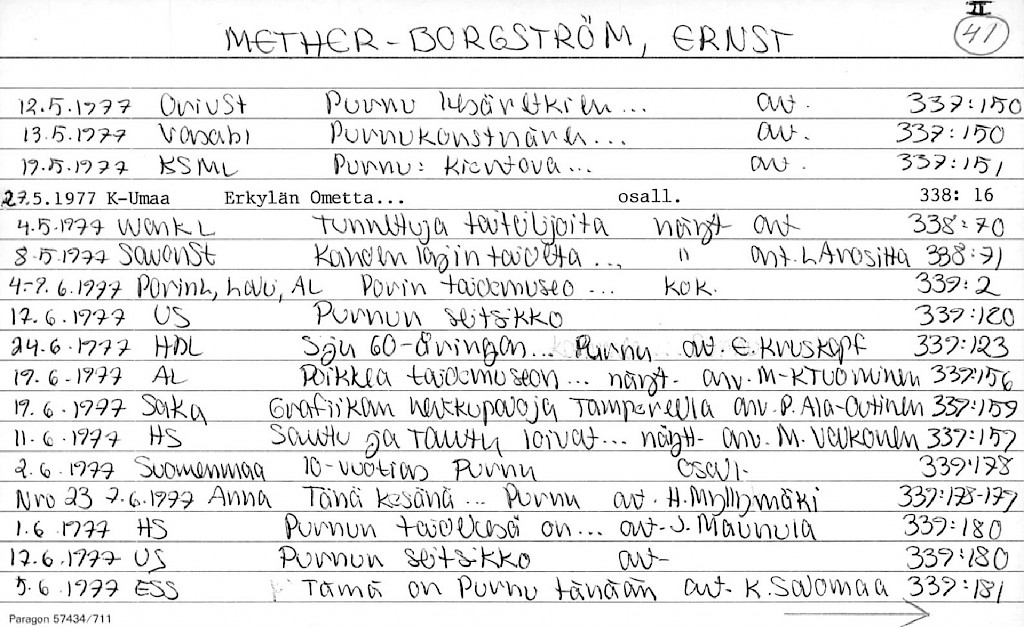 II
METHER-BORGSTRÖM, ERNST 41
12.5.1977 OrivSt Purnu kesäretkien... art. 337:150
13.5.1977 Vasabl Purnukonstnären... art. 337:150
19.5.1977 KSML Purnu: Kiertova... art. 337:151
27.5.1977 K-Umaa Erkylän Ometta... osall. 338: 16
4.5.1977 WarkL Tunnettuja taiteilijoita näyt art 338:70
8.5.1977 SavonSt Kahden lajin taidetta... " art. L Arosilta 338:71
4-9.6.1977 PorinL, LaVi, AL Porin taidemuseo... kok. 339:2
12.6.1977 US Purnun seitsikko 339:120
24.6.1977 HBL Sju 60-åringar... Purnu art. E. Kruskopf 339:123
19.6.1977 AL Poikkea taidemuseon... näyt. arv. M-K Tuominen 339:156
19.6.1977 SaKa Grafiikan herkkupaloja Tampereella arv. P. Ala-Outinen 339:159
11.6.1977 HS Sattu ja Tauty loivat... näytt. arv. M. Valkonen 339:159
2.6.1977 Suomenmaa 10-vuotias Purnu osall. 339:178
Nro 23 7.6.1977 Anna Tänä kesänä... Purnu art. H. Myllymäki 339:178-179
1.6.1977 HS Purnun taidekesä on... art. J. Maunula 339:180
12.6.1977 US Purnun seitsikko art. 339:180
5.6.1977 ESS Tämä on Purnu tänään art. K. Salomaa 339:181
Paragon 57434/711